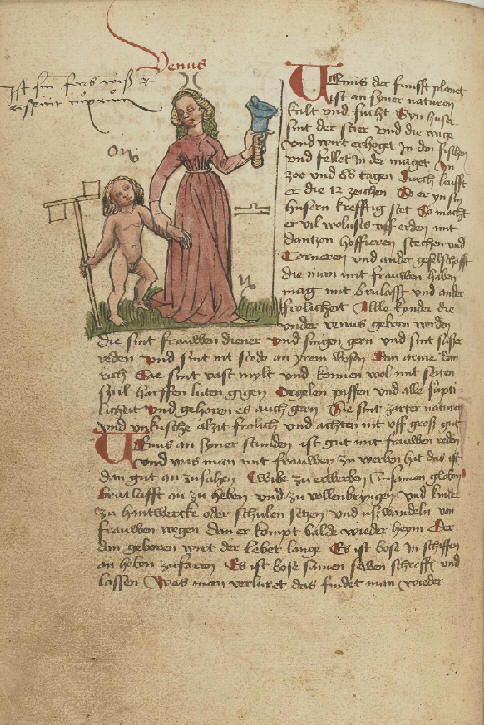 Venus
Venus der funfft planet
ist an syner naturen
kalt und fucht Syn huser
sint der stier und die wage
und wirt erhoget in den fischen
und fellet in der maget
200 und 88 tagen Durch laufft
er die 12 zeichen So er yn syn
husern trefftig stet So macht
er vil wolusts uff erden mit
dantzen hoffieren stechen und
Torneren und ander gesellschafft
die man mit frauwen haben
mag mit brulafft und ander
frolicheit Alle kynder die
under venus geborn werden
die sint frauwen diener Und singen gern und sint susser
reden Und sint mit
rich Sie sint vast mylt und konnen wol mit seiten
spil harffen luten gygen Orgelen pfiffen und alle supti
licheit Und gehoren es auch gern Sie sint zarter naturen
und unkuscze alzit frolich und achten nit uff gross gut
Venus an syner stunden ist gut mit frauwen reden
Und was man mit frauwen zu werben hat das ist
dan gut an zufahen Wibe zu erwerben
Brulafft an zu heben und zu vollenbringen Und kinder
zu hantwercke oder schulen setzen und usswandeln von
frauwen wegen dan er kompt balde wieder heym Wer
dan geboren wirt der lebet lange Es ist bose in schiffen
an heben zufaren Es ist bose samen sewen schrefft und
lassen Was man verluret das findet man wieder